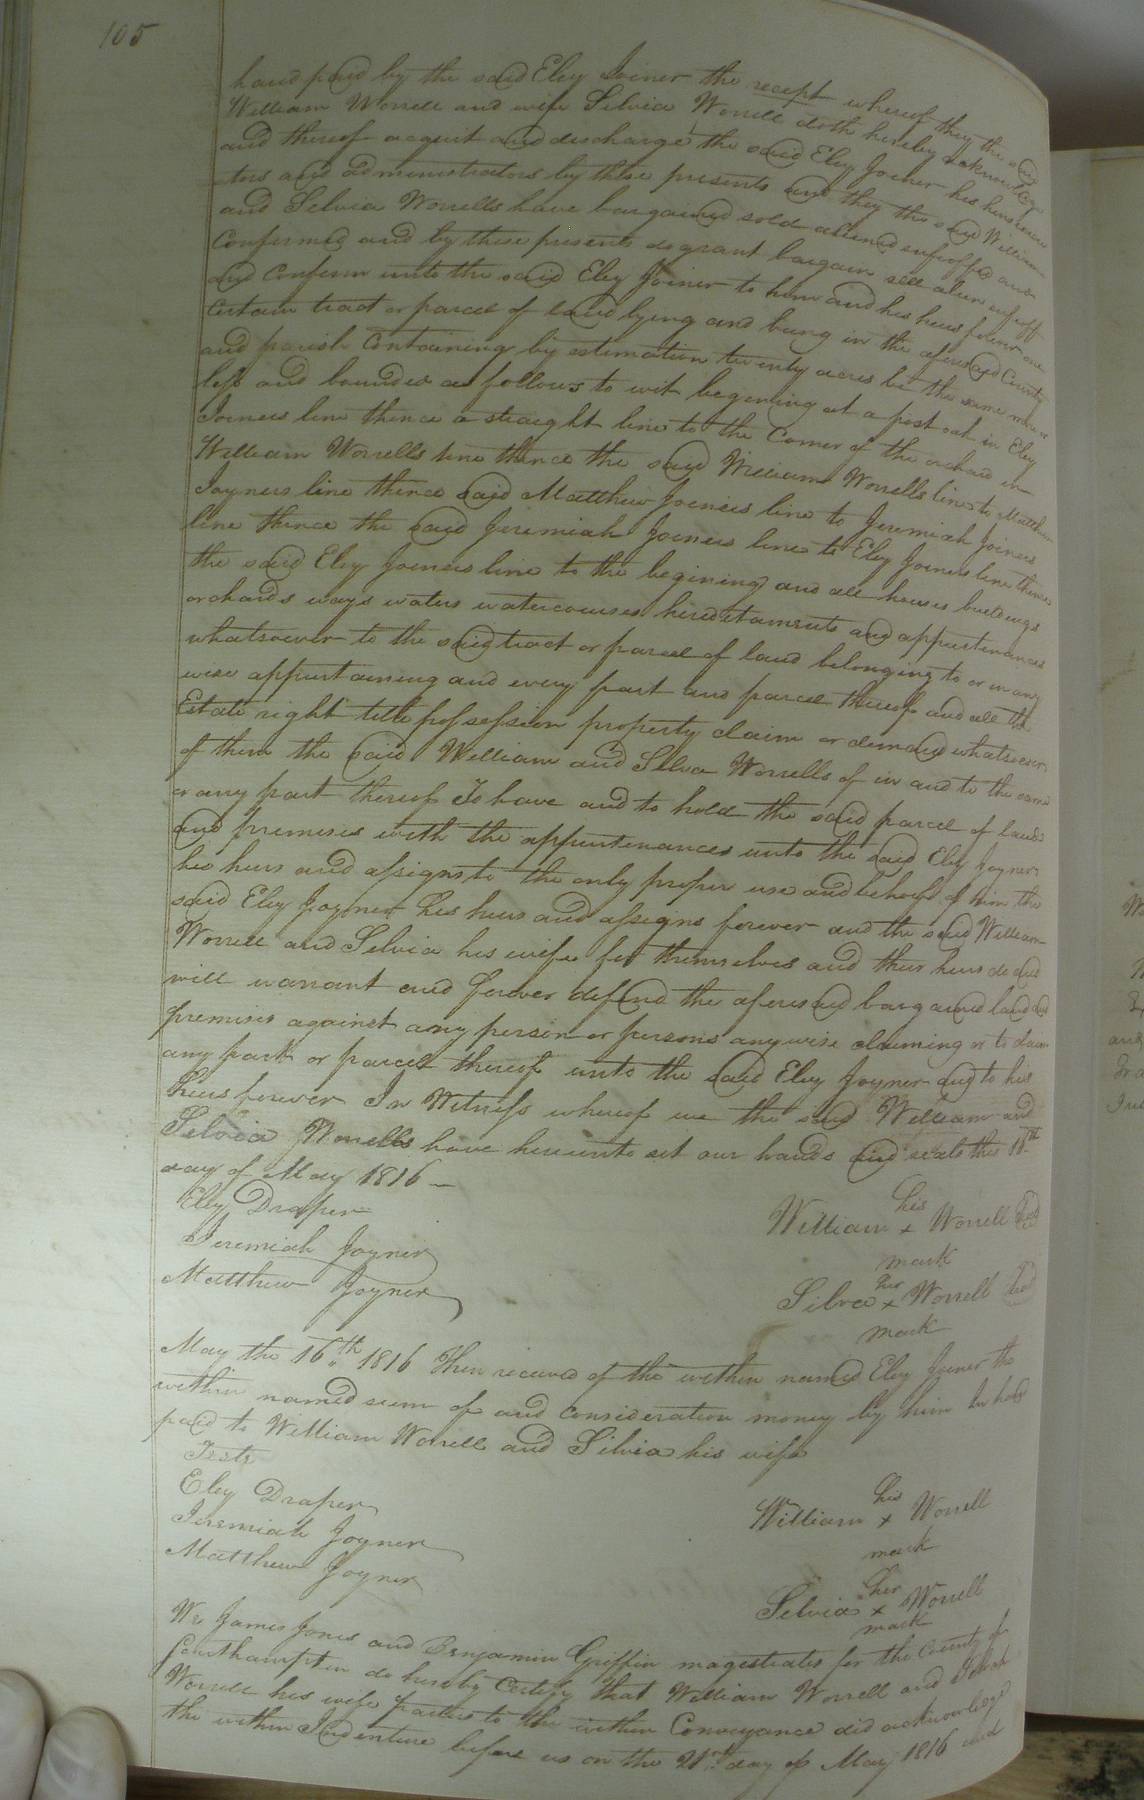 105
hand paid by the said Eley Joiner the recept whereof they the said
William Worrell and wife Silvia Worrell doth hereby acknowledge
and thereof acquit and discharge the said Eley Joiner his heirs execu
tors and administrators by these presents and they the said William
and Selvia Worrells have bargained sold aliened enfeoffed and
Confirmed and by these presents do grant bargain sell alien enfeoff
and confirm unto the said Eley Joiner to him and his heirs forever one
Certain tract or parcel of land lying and being in the aforesaid County
and parish Containing by estimation twenty acres be the same more or
less and bounded as follows to wit begening at a post oak in Eley
Joiners line thence a straight line to the Corner of the orchard in
William Worrells line thence the said William Worrells line to Matthew
Joyners line thence said Matthew Joiners line to Jeremiah Joiners
line thence the said Jeremiah Joiners line to Eley Joiners line thence
the said Eley Joiners line to the begining and all houses buildings
orchards ways waters watercourses hereditaments and appurtenances
whatsoever to the said tract or parcel of land belonging to or in any
wise appurtaining and every part and parcel thereof and all the
Estate right title possession property claim or demand whatsoever
of them the said William and Silva Worrells of in and to the same
or any part thereof To have and to hold the said parcel of land
and premises with the appurtenances unto the said Eley Joyner
his heirs and assigns to the only proper use and behoof of him the
said Eley Joyner his heirs and assigns forever and the said William
Worrell and Selvia his wife for themselves and their heirs do and
will warrant and forever defend the aforesaid bargained land and
premises against any person or persons anywise claiming or to claim
any part or parcel thereof unto the said Eley Joyner and to his
heirs forever In Witness whereof we the said William and
Selvia Worrells have hereunto set our hands and seals this 18th
day of May 1816 —
Eley Draper
Jeremiah Joyner
Matthew Joyner
his
William x Worrell Seal
mark
her
Silva x Worrell Seal
mark
May the 16th 1816 Then received of the within named Eley Joiner the
within named sum of and consideration money by him in hand
paid to William Worrell and Silvia his wife
Teste
Eley Draper
Jeremiah Joyner
Matthew Joyner
his
William x Worrell
mark
her
Selvia x Worrell
mark
We James Jones and Benjamin Griffin magestrates for the County of
Southampton do hereby Certify that William Worrell and
Worrell his wife parties to the within Conveyance did acknowledge
the within Indenture before us on the 21st day of May 1816 and